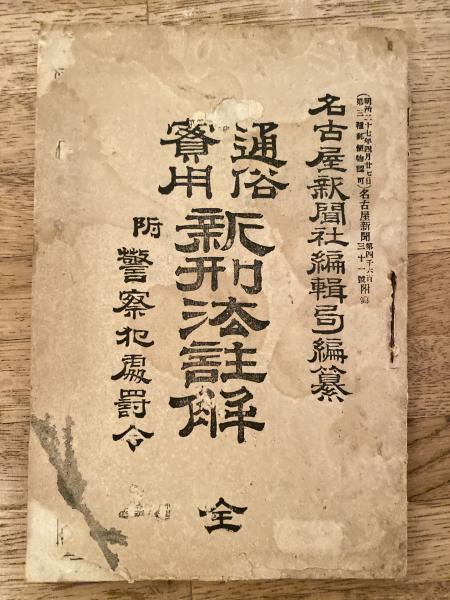 (明治二十七年四月廿七日
第三種郵便物認可)名古屋新聞第四千六百
三十一號附錄
名古屋新聞社編輯局編纂
通俗
實用
新刑法註解
附警察犯處罰令
全